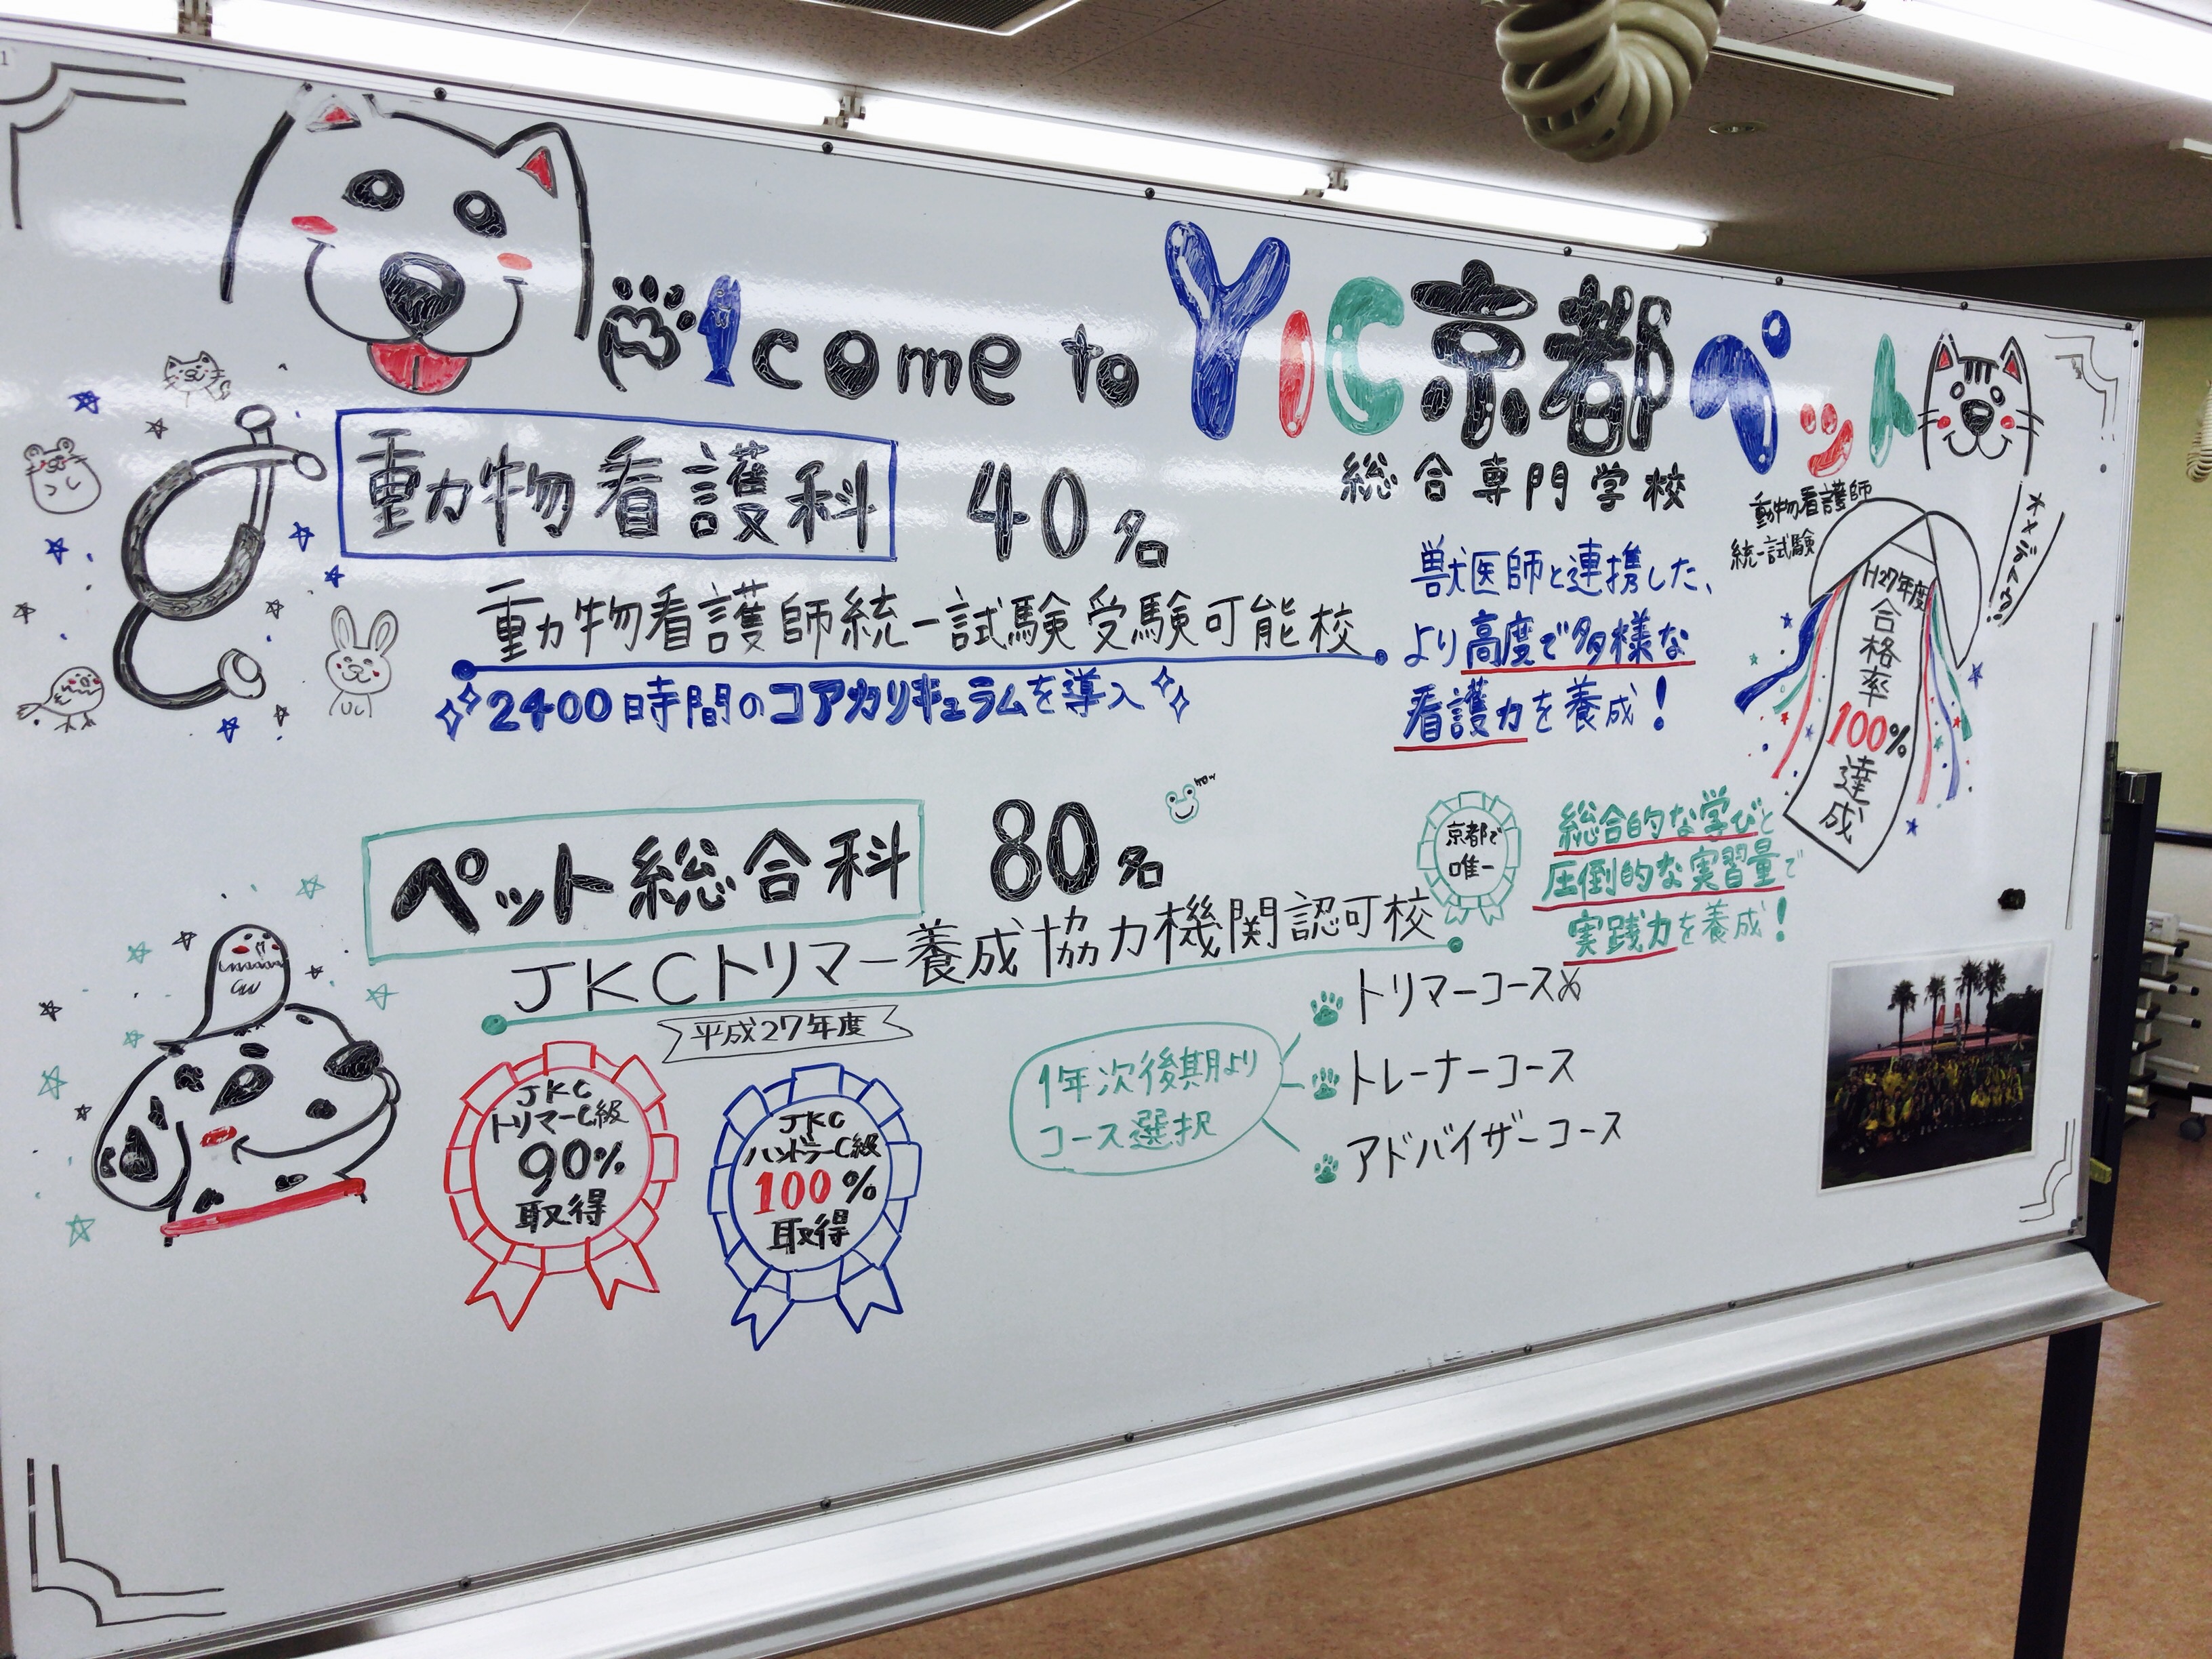 Welcome to YIC京都ペット
総合専門学校
動物看護科 40名
動物看護師統一試験受験可能校
2400時間のコアカリキュラムを導入
獣医師と連携した、
より高度で多様な
看護力を養成!
動物看護師
統一試験
オメデトウ!!
H27年度
合格率
100%
達成
ペット総合科 80名
JKCトリマー養成協力機関認可校
京都で
唯一
総合的な学びと
圧倒的な実習量で
実践力を養成!
平成27年度
JKC
トリマーC級
90%
取得
JKC
ハンドラーC級
100%
取得
1年次後期より
コース選択
トリマーコース
トレーナーコース
アドバイザーコース